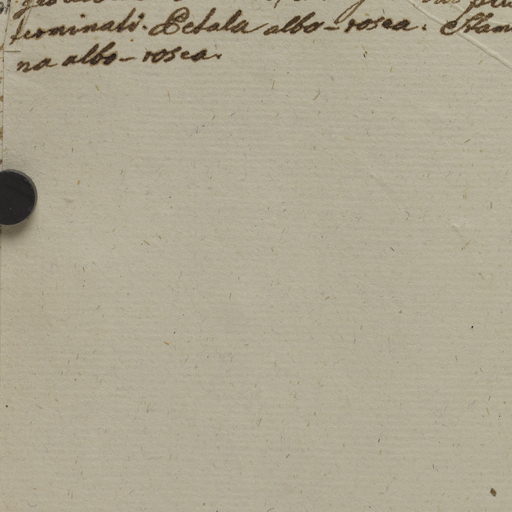 terminali. Petala albo-rosea. Stam
na albo-rosea.